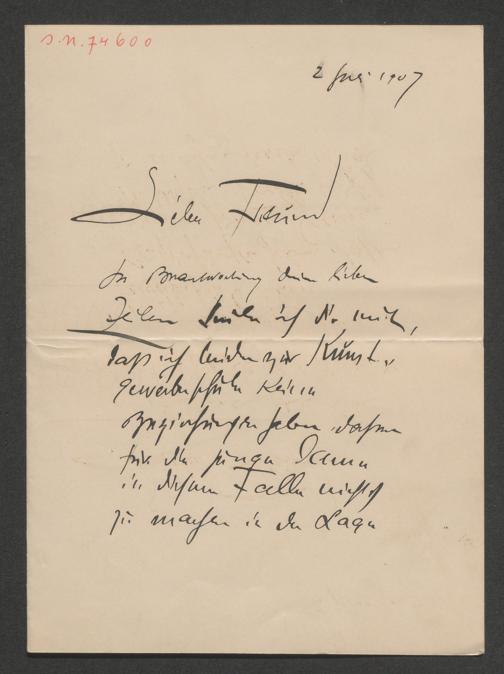 J.N. 74600
2 Juni 1907
Lieber Freund
In Beantwortung deiner lieben
Zeilen theile ich dir mit,
daß ich leider zur Kunst-
gewerbeschule keine
Beziehungen habe, daher
für die junge Dame
in diesem Falle nichts
zu machen in der Lage